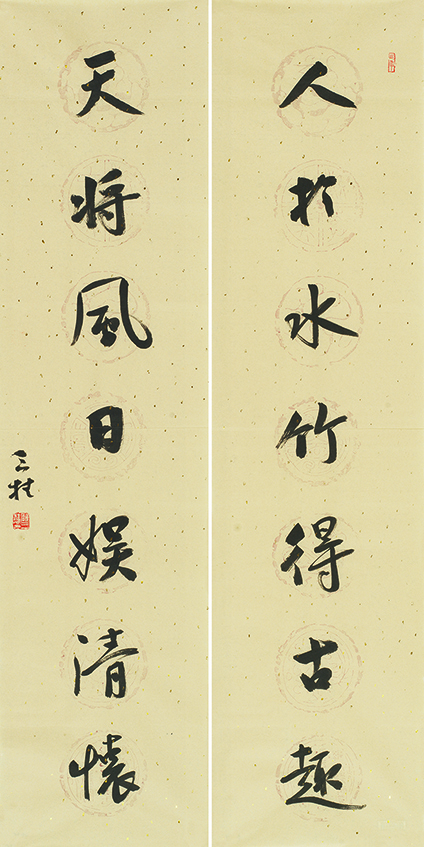 人於水竹得古趣
天将風日娱清懷
三桂